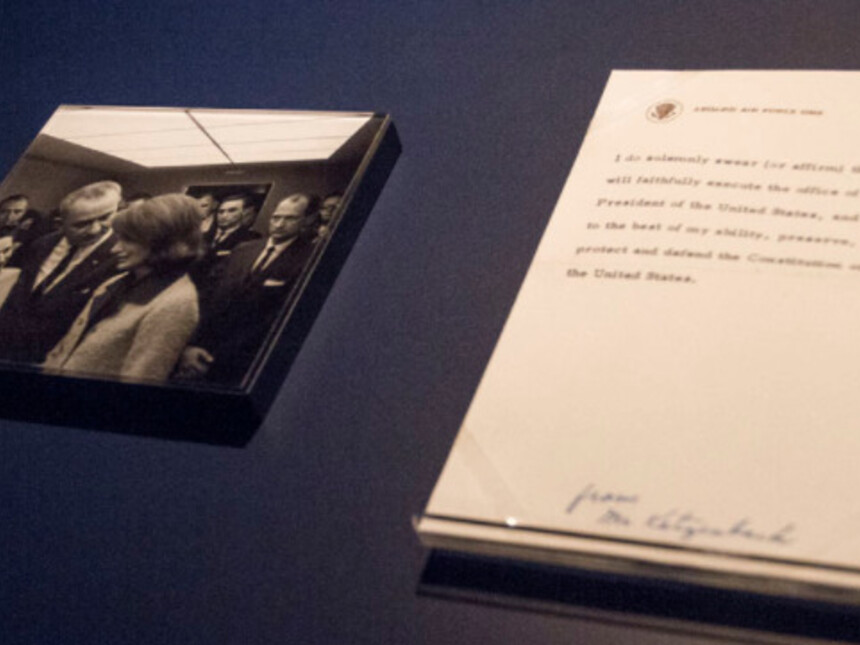 ABOARD AIR FORCE ONE
I do solemnly swear (or affirm)
will faithfully execute the office of
President of the United States, and
to the best of my ability, preserve,
protect and defend the Constitution
the United States.
from
Mr Katzenbach